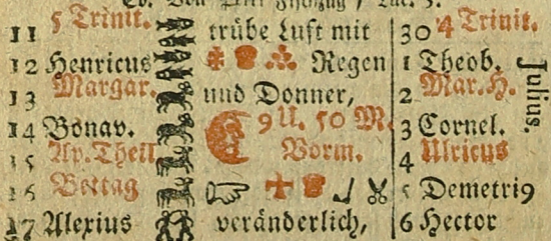 11 5 Trinit. trübe Luft mit 30 4 Trinit.
12 Henricus Regen 1 Theob.
13 Margar. und Donner, 2 Mar. H.
14 Bonav. 9 U. 50 M. 3 Cornel.
15 Ap. Theil Vorm. 4 Ulricus
16 Bettag 5 Demetri9
17 Alexius veränderlich, 6 Hector
Julius.